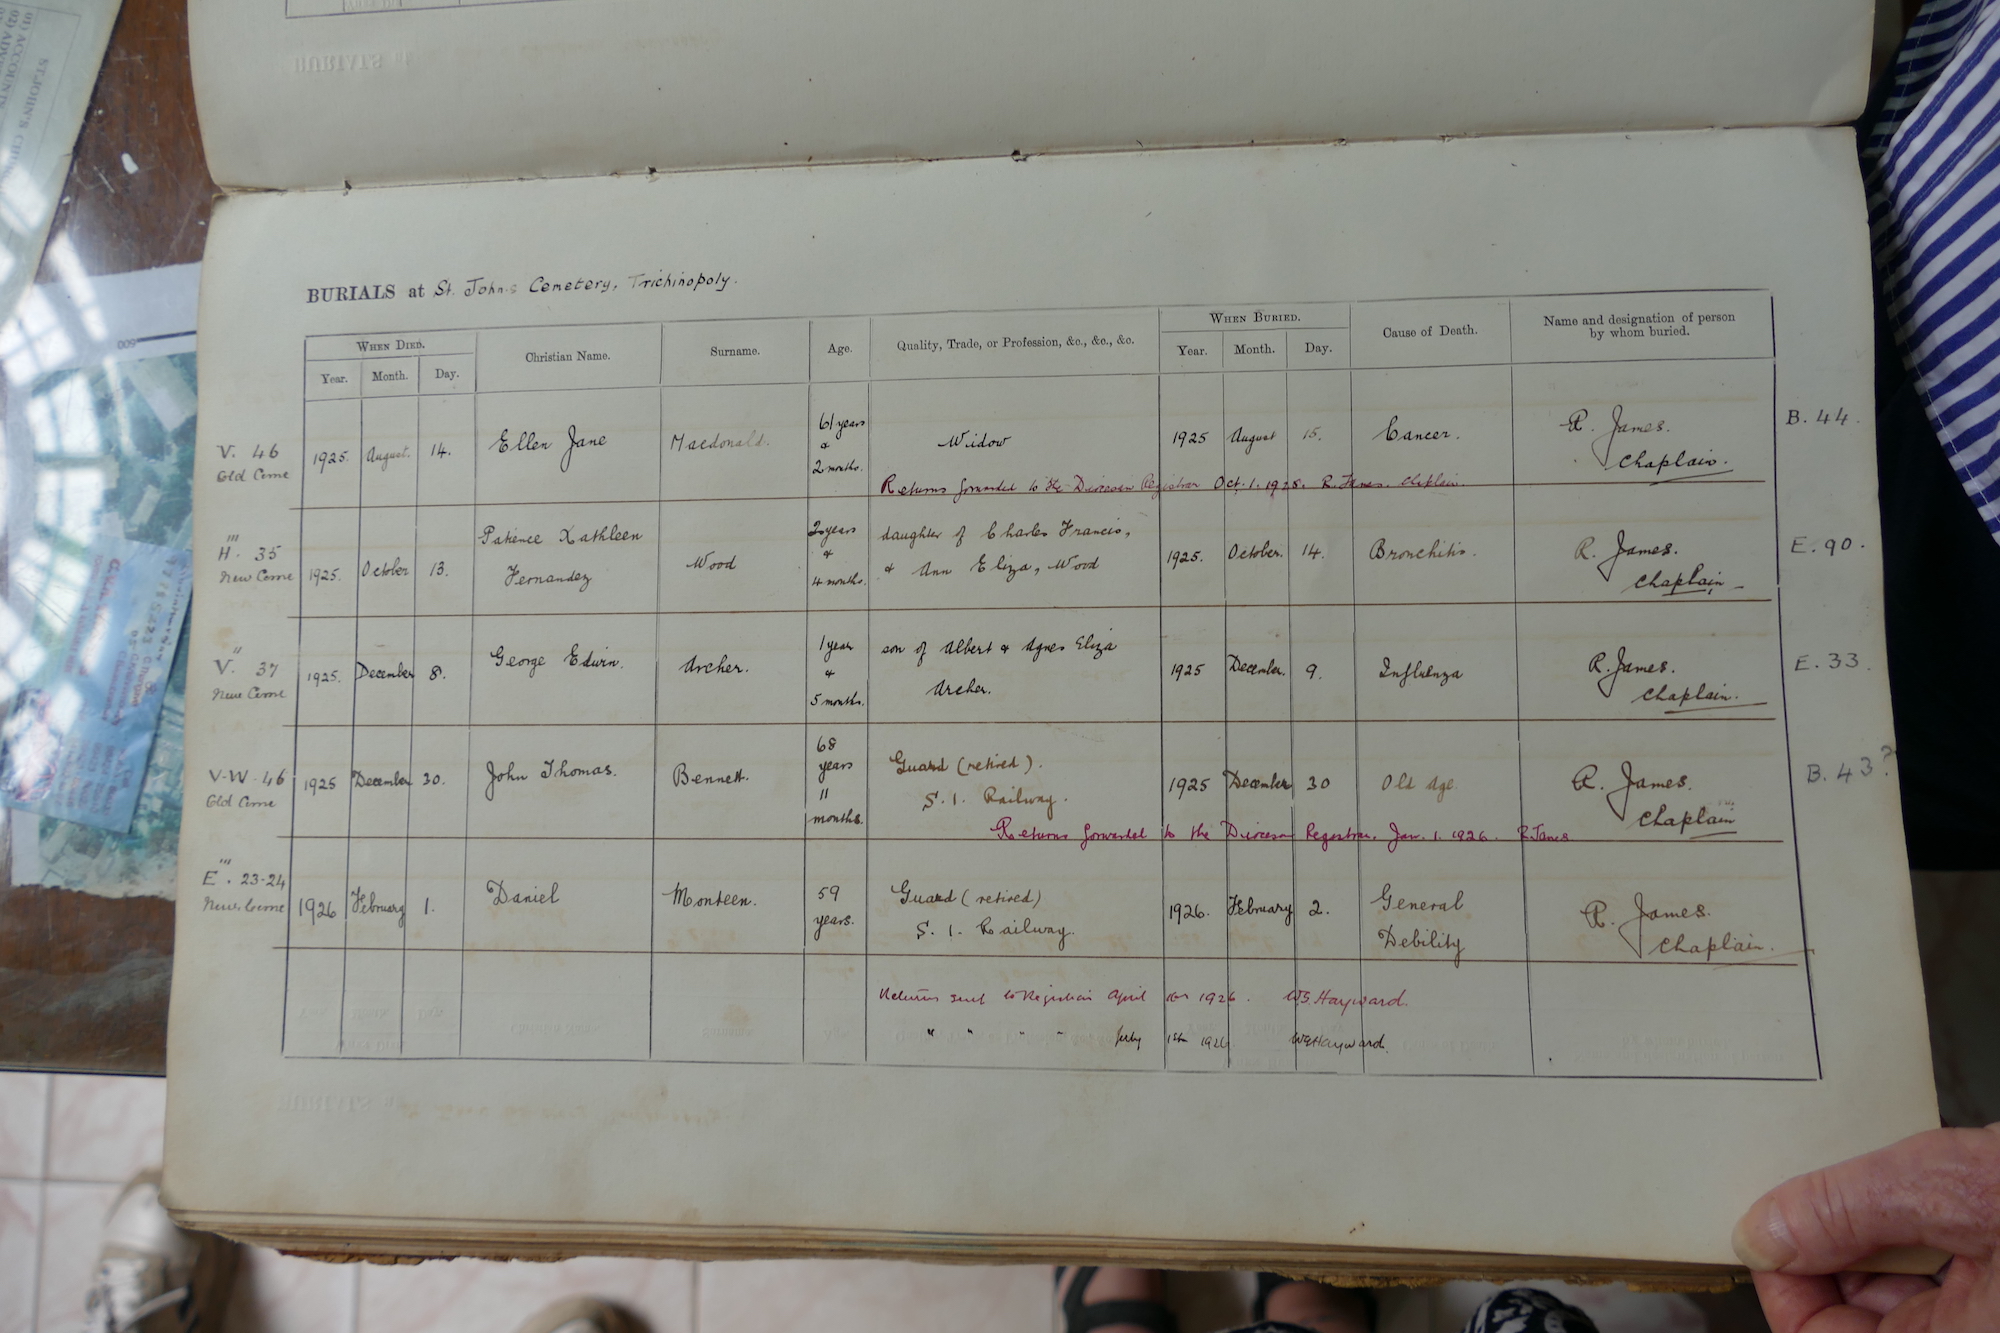 BURIALS at St. John's Cemetery, Trichinopoly.
WHEN DIED.
Year. Month. Day.
Christian Name.
Surname.
Age.
Quality, Trade, or Profession, &c., &c., &c.
WHEN BURIED.
Year. Month. Day.
Cause of Death.
Name and designation of person
by whom buried.
V. 46
Old Ceme
1925. August. 14.
Ellen Jane
Macdonald.
61 years
&
2 months.
Widow
1925 August 15.
Cancer.
R. James.
Chaplain.
B. 44.
Returns forwarded to the Diocesan Registrar Oct. 1. 1925. R. James. Chaplain.
H''' . 35
New Ceme
1925. October 13.
Patience Kathleen
Fernandez
Wood
2 years
&
4 months.
daughter of Charles Francis,
& Ann Eliza, Wood
1925. October. 14.
Bronchitis.
R. James.
Chaplain
E. 90.
V''. 37
New Ceme
1925. December 8.
George Edwin.
Archer.
1 year
&
5 months.
son of Albert & Agnes Eliza
Archer.
1925 December. 9.
Influenza
R. James.
Chaplain.
E. 33.
V-W. 46
Old Ceme
1925 December 30.
John Thomas.
Bennett.
68
years
11
months.
Guard (retired).
S. I. Railway.
1925 December 30
Old Age.
R. James.
Chaplain
B. 43?
Returns forwarded to the Diocesan Registrar. Jan. 1. 1926. R. James
E'''. 23-24
New Ceme
1926 February 1.
Daniel
Monteen.
59
years.
Guard (retired)
S. I. Railway.
1926. February 2.
General
Debility
R. James.
Chaplain.
Returns sent to Registrar April 1926. WG. Hayward.
" " " " July 1st 1926 WG Hayward.